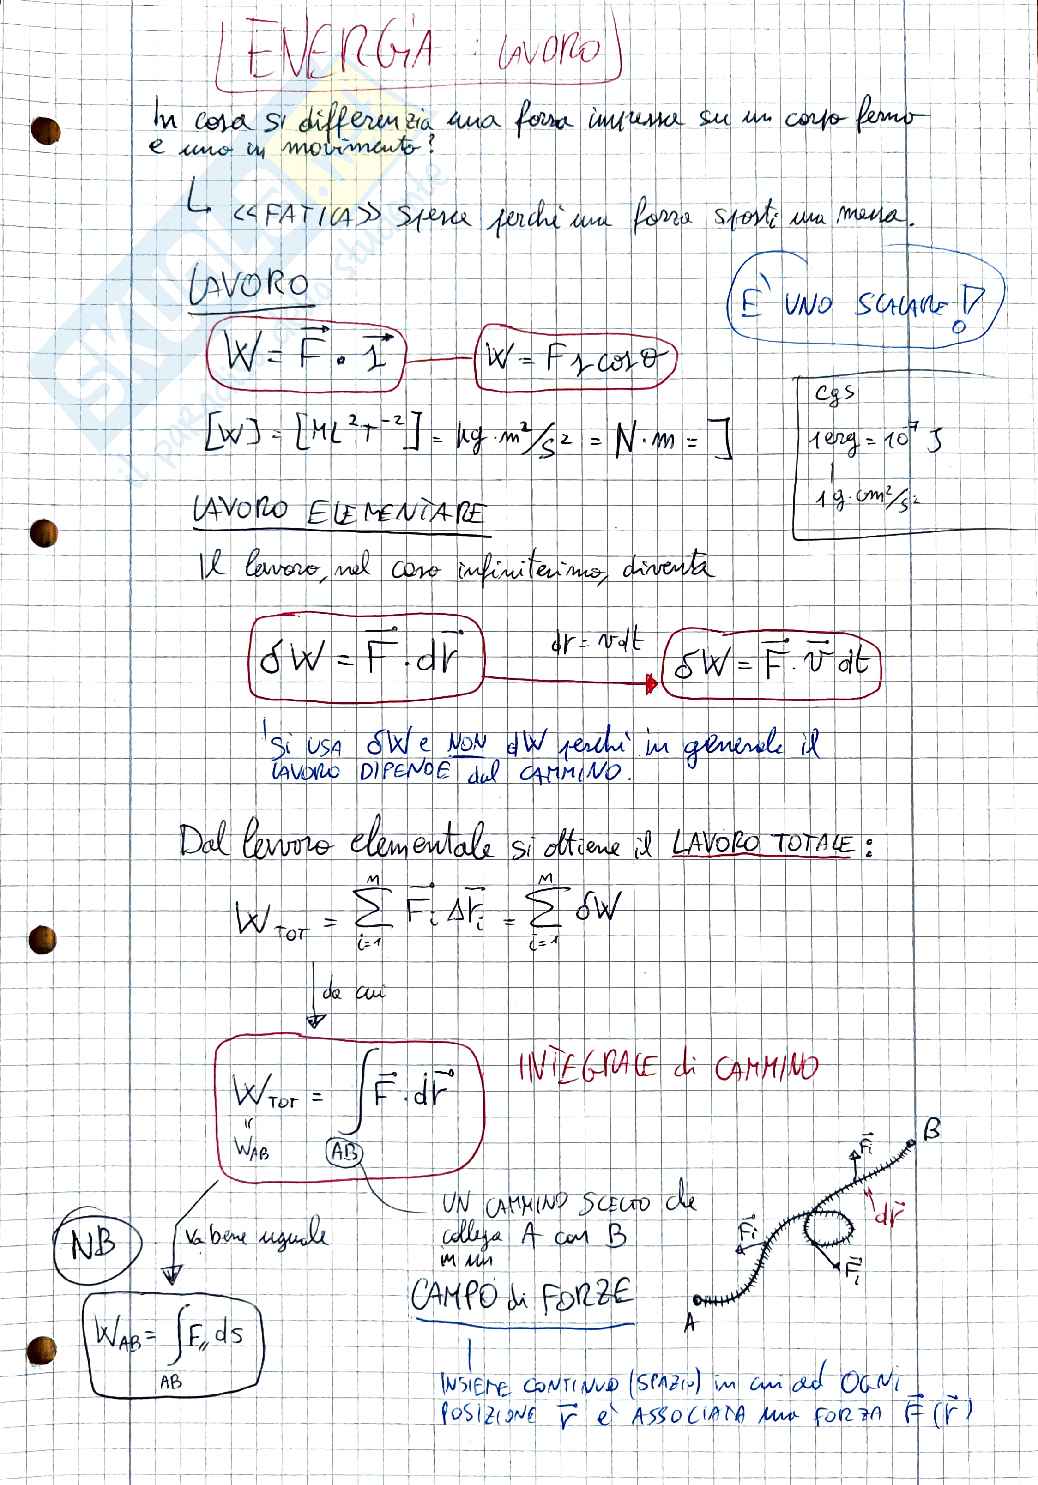 ENERGIA : LAVORO
In cosa si differenzia una forza impressa su un corpo fermo
e uno in movimento?
↳ <<FATICA>> spesa perché una forza sposti una massa.
LAVORO
E' UNO SCALARE!
W = F⃗ · s⃗
W = F s cosθ
[W] = [ML²T⁻²] = kg·m²/s² = N·m = J
cgs
1 erg = 10⁷ J
1 g·cm²/s²
LAVORO ELEMENTARE
Il lavoro, nel caso infinitesimo, diventa
δW = F⃗ · dr⃗
dr = vdt
δW = F⃗ · v⃗ dt
SI USA δW e NON dW perché in generale il
LAVORO DIPENDE dal CAMMINO.
Dal lavoro elementale si ottiene il LAVORO TOTALE:
W TOT = Σ M i=1 F⃗i Δr⃗i = Σ M i=1 δW
da cui
W TOT = ∫ AB F⃗ · dr⃗
INTEGRALE di CAMMINO
"
W AB
B
F⃗i
dr⃗
F⃗i
F⃗i
A
UN CAMMINO SCELTO che
collega A con B
in un
CAMPO di FORZE
NB
va bene uguale
W AB = ∫ AB F// ds
INSIEME CONTINUO (SPAZIO) in cui ad OGNI
POSIZIONE r⃗ è ASSOCIATA una FORZA F⃗(r⃗)
SKUOLA.NET
il paradiso dello studente